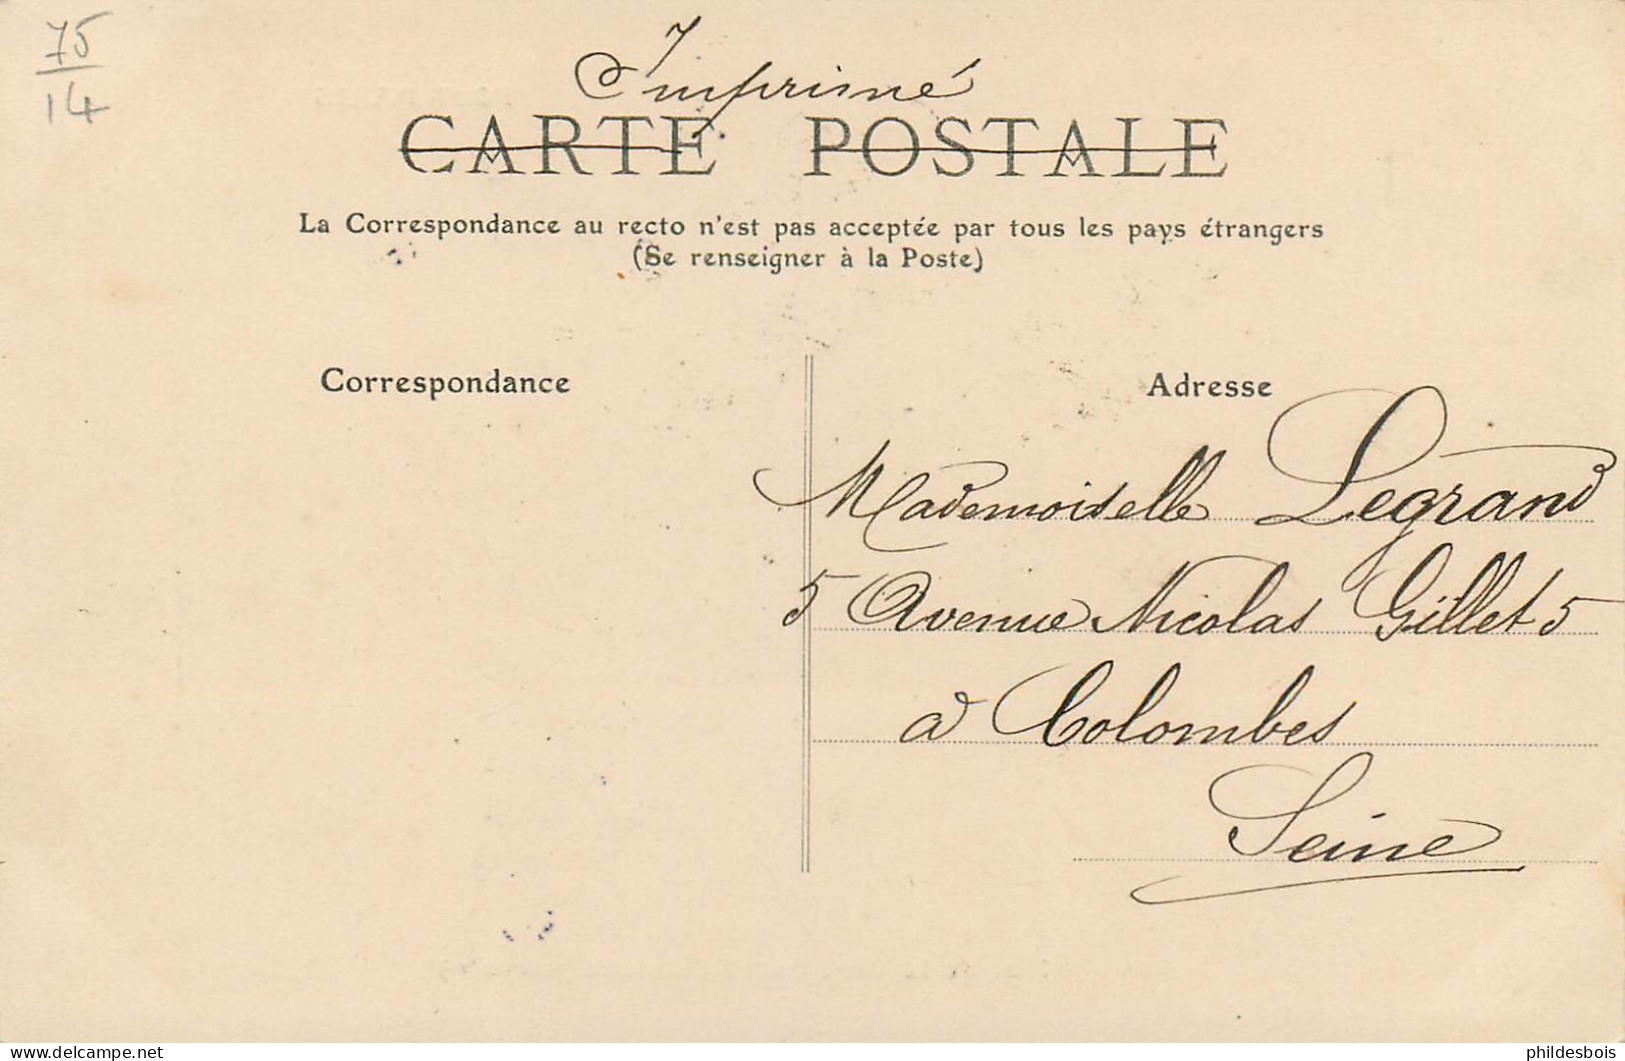 75
14
Imprimé
CARTE POSTALE
La Correspondance au recto n'est pas acceptée par tous les pays étrangers
(Se renseigner à la Poste)
Correspondance
Adresse
Mademoiselle Legrand
5 Avenue Nicolas Gillet 5
à Colombes
Seine
www.delcampe.net
phildesbois